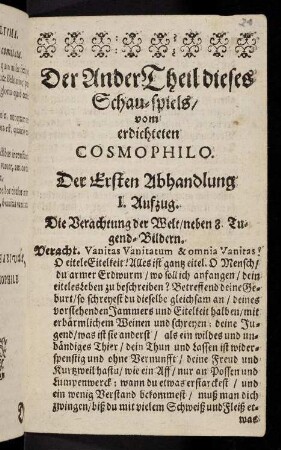 21
Der Ander Theil dieses
Schau-spiels/
vom
erdichteten
COSMOPHILO.
Der Ersten Abhandlung
I. Aufzug.
Die Verachtung der Welt/neben 8. Tu-
gend-Bildern.
Veracht. Vanitas Vanitatum & omnia Vanitas!
O eitele Eitelkeit! Alles ist gantz eitel. O Mensch/
du armer Erdwurm/ wo soll ich anfangen/ dein
eiteles Leben zu beschreiben? Betreffend deine Ge-
burt/ so schreyest du dieselbe gleichsam an/ deines
vorstehenden Jammers und Eitelkeit halben/ mit
erbärmlichem Weinen und schreyen: deine Ju-
gend/ was ist sie anderst/ als ein wildes und un-
bändiges Thier/ dein Thun und Lassen ist wider-
spenstig und ohne Vernunfft/ deine Freud und
Kurtzweil hastu/ wie ein Aff/ nur an Possen und
Lumpenwerck: wann du etwas erstarckest/ und
ein wenig Verstand bekommest/ muß man dich
zwingen/ biß du mit vielem Schweiß und Fleiß et-
was